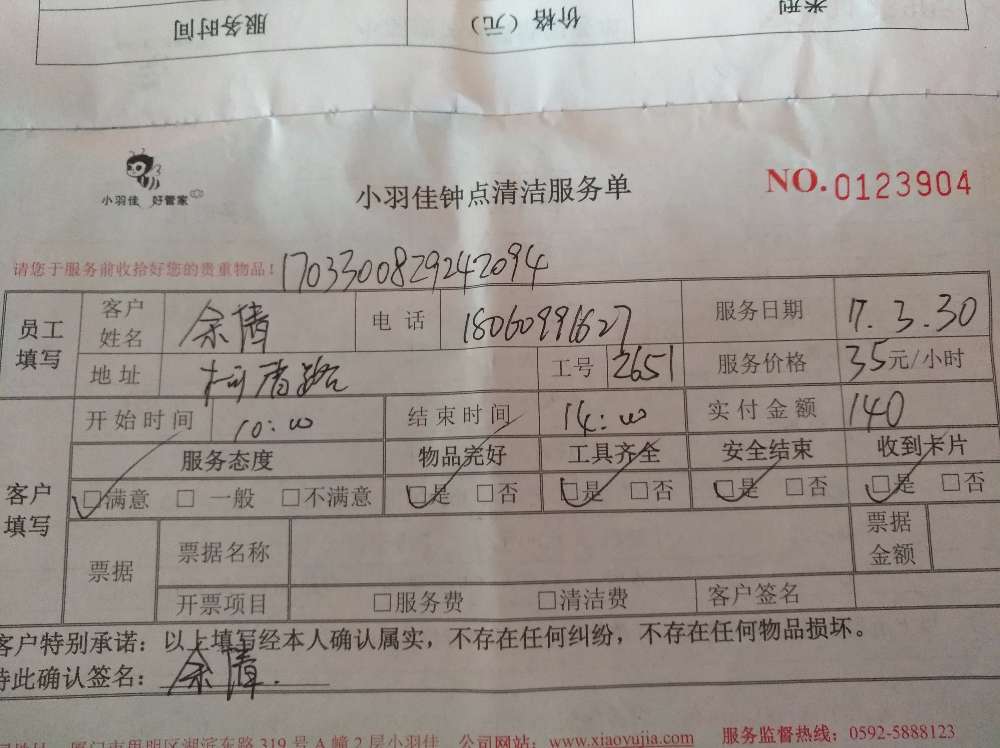 服务时间 价格（元） 类别
小羽佳 好管家
小羽佳钟点清洁服务单
NO.0123904
请您于服务前收拾好您的贵重物品！ 1703300829242094
员工填写 客户姓名 余倩 电话 18060991627 服务日期 17.3.30
地址 工号 2651 服务价格 35元/小时
客户填写 开始时间 10:00 结束时间 14:00 实付金额 140
服务态度 物品完好 工具齐全 安全结束 收到卡片
□满意 □一般 □不满意 □是 □否 □是 □否 □是 □否 □是 □否
票据 票据名称 票据金额
开票项目 □服务费 □清洁费 客户签名
客户特别承诺：以上填写经本人确认属实，不存在任何纠纷，不存在任何物品损坏。
特此确认签名：余倩.
厦门市思明区湖滨东路319号A幢2层小羽佳 公司网站：www.xiaoyujia.com 服务监督热线：0592-5888123